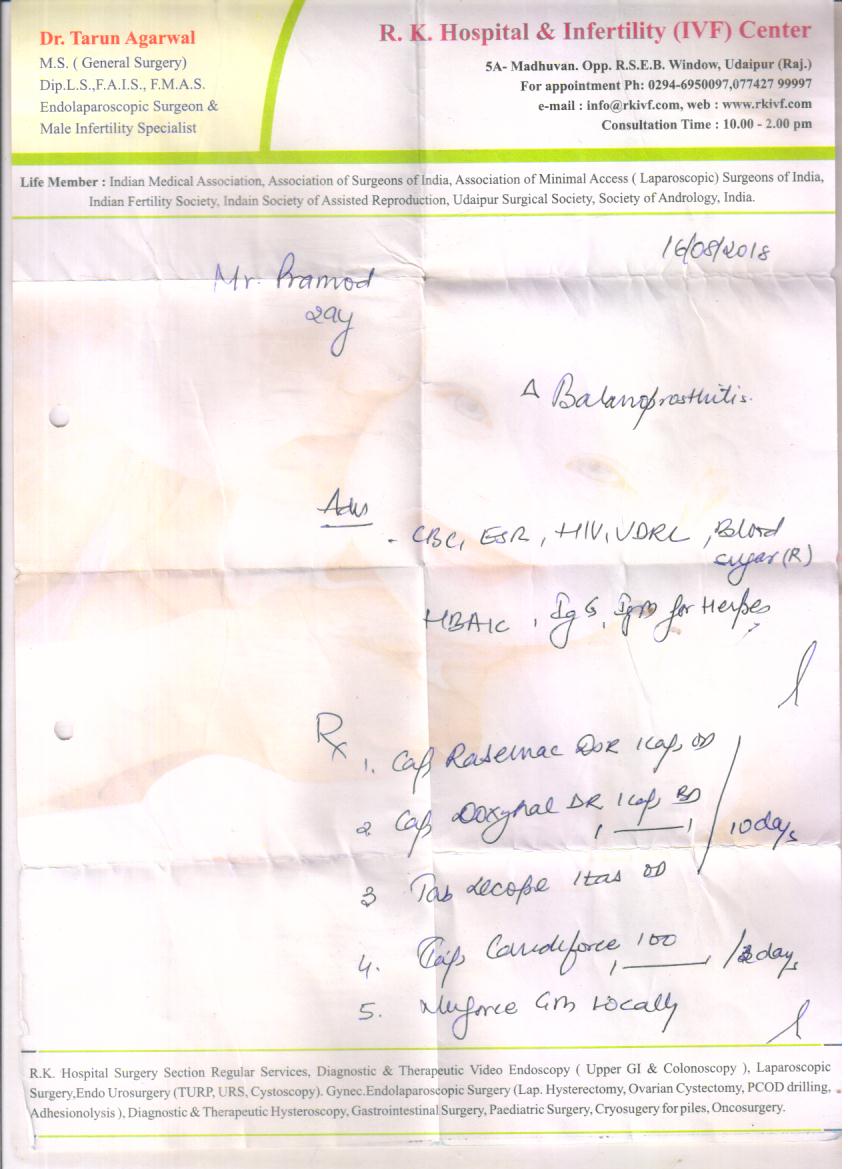 Dr. Tarun Agarwal
M.S. ( General Surgery)
Dip.L.S.,F.A.I.S., F.M.A.S.
Endolaparoscopic Surgeon &
Male Infertility Specialist
R. K. Hospital & Infertility (IVF) Center
5A- Madhuvan. Opp. R.S.E.B. Window, Udaipur (Raj.)
For appointment Ph: 0294-6950097,077427 99997
e-mail : info@rkivf.com, web : www.rkivf.com
Consultation Time : 10.00 - 2.00 pm
Life Member : Indian Medical Association, Association of Surgeons of India, Association of Minimal Access ( Laparoscopic) Surgeons of India,
Indian Fertility Society, Indain Society of Assisted Reproduction, Udaipur Surgical Society, Society of Andrology, India.
16/08/2018
Mr. Pramod
29y
Δ Balanoprosthitis.
Adv
- CBC, ESR, HIV, VDRL, Blood
sugar (R)
HBA1C, IgG, IgM for Herpes
Rx
1. Cap DSR 1 cap OD
2 Cap DR 1 cap BD
10 days
3 Tab 1 tab OD
4. Cap Candiforce 100
days
5. Locally
R.K. Hospital Surgery Section Regular Services, Diagnostic & Therapeutic Video Endoscopy ( Upper GI & Colonoscopy ), Laparoscopic
Surgery,Endo Urosurgery (TURP, URS, Cystoscopy). Gynec.Endolaparoscopic Surgery (Lap. Hysterectomy, Ovarian Cystectomy, PCOD drilling,
Adhesionolysis ), Diagnostic & Therapeutic Hysteroscopy, Gastrointestinal Surgery, Paediatric Surgery, Cryosugery for piles, Oncosurgery.